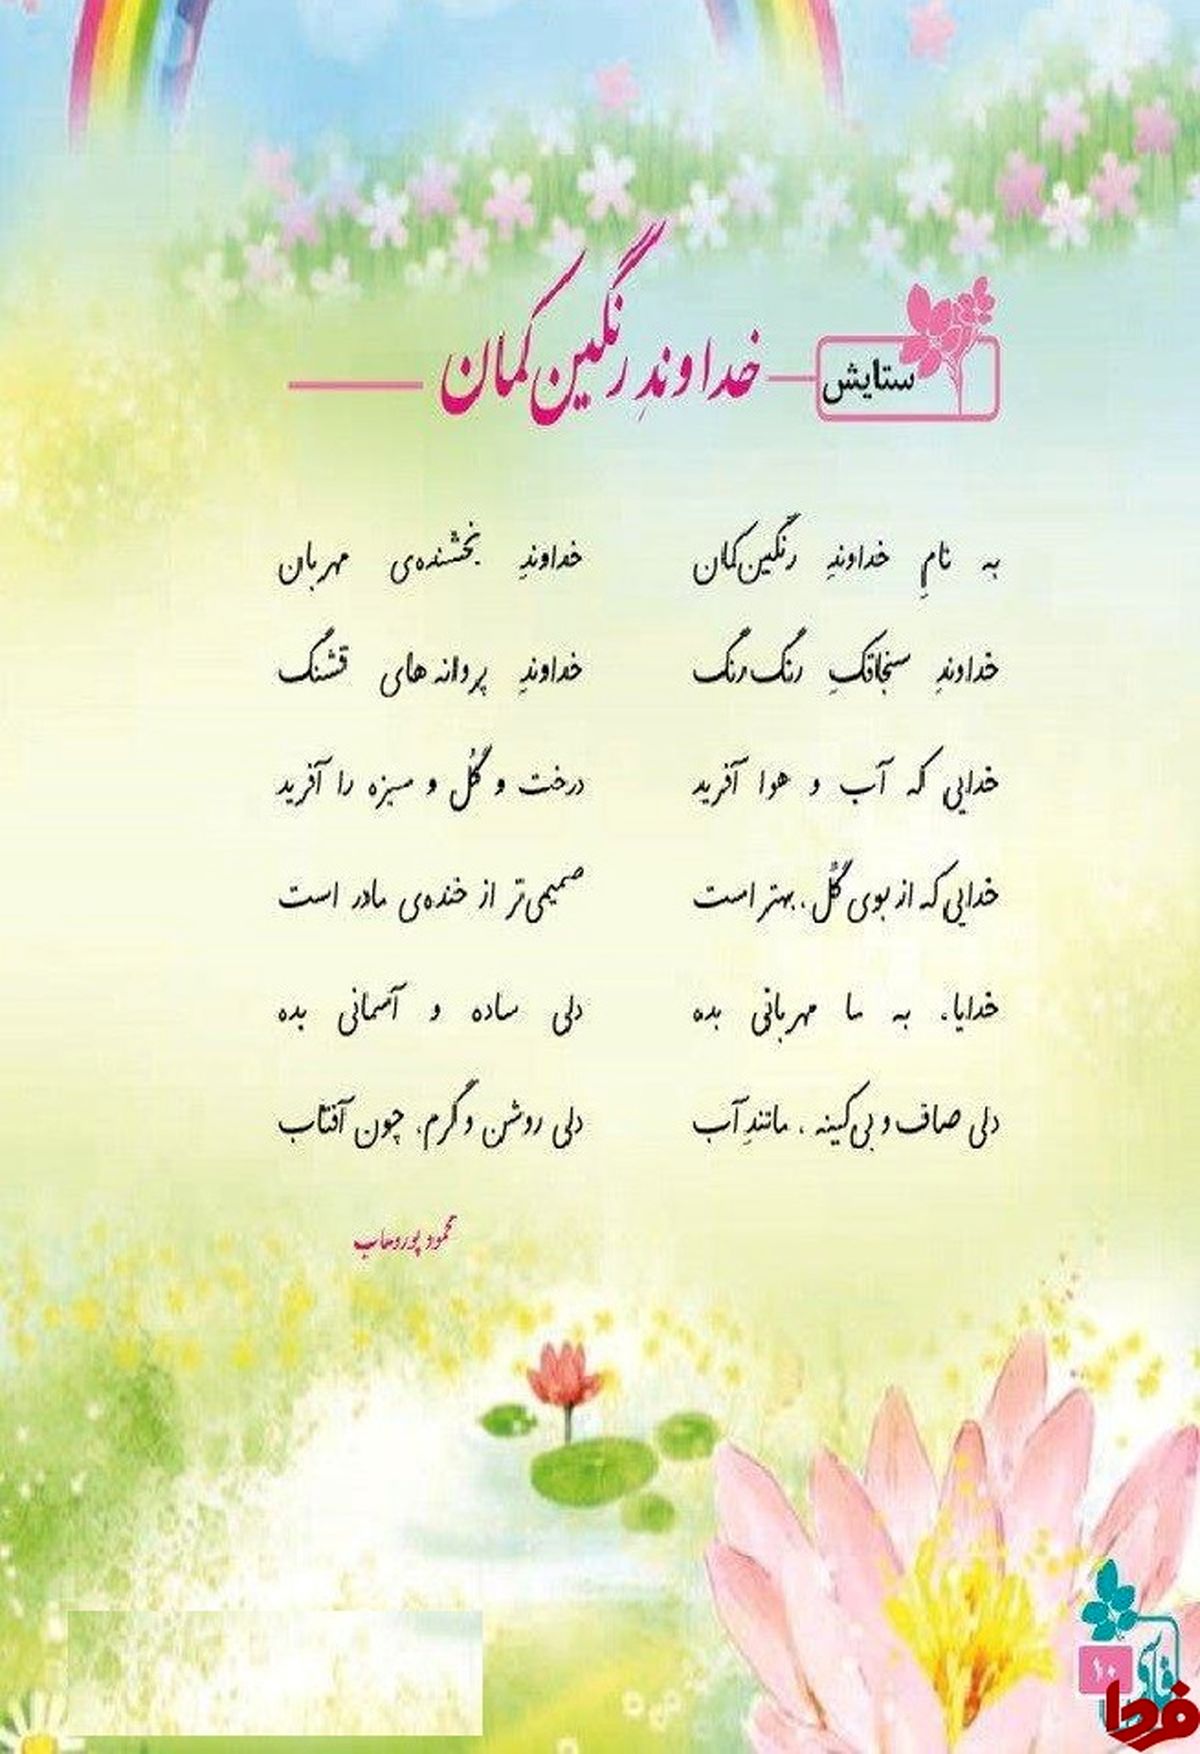 ستایش
خداوندِ رنگین‌کمان
به نامِ خداوندِ رنگین‌کمان خداوندِ بخشنده‌ی مهربان
خداوندِ سنجاقکِ رنگ‌رنگ خداوندِ پروانه‌های قشنگ
خدایی که آب و هوا آفرید درخت و گُل و سبزه را آفرید
خدایی که از بوی گُل، بهتر است صمیمی‌تر از خنده‌ی مادر است
خدایا، به ما مهربانی بده دلی ساده و آسمانی بده
دلی صاف و بی‌کینه، مانندِ آب دلی روشن و گرم، چون آفتاب
محمود پوروهاب
۱۰
فردا